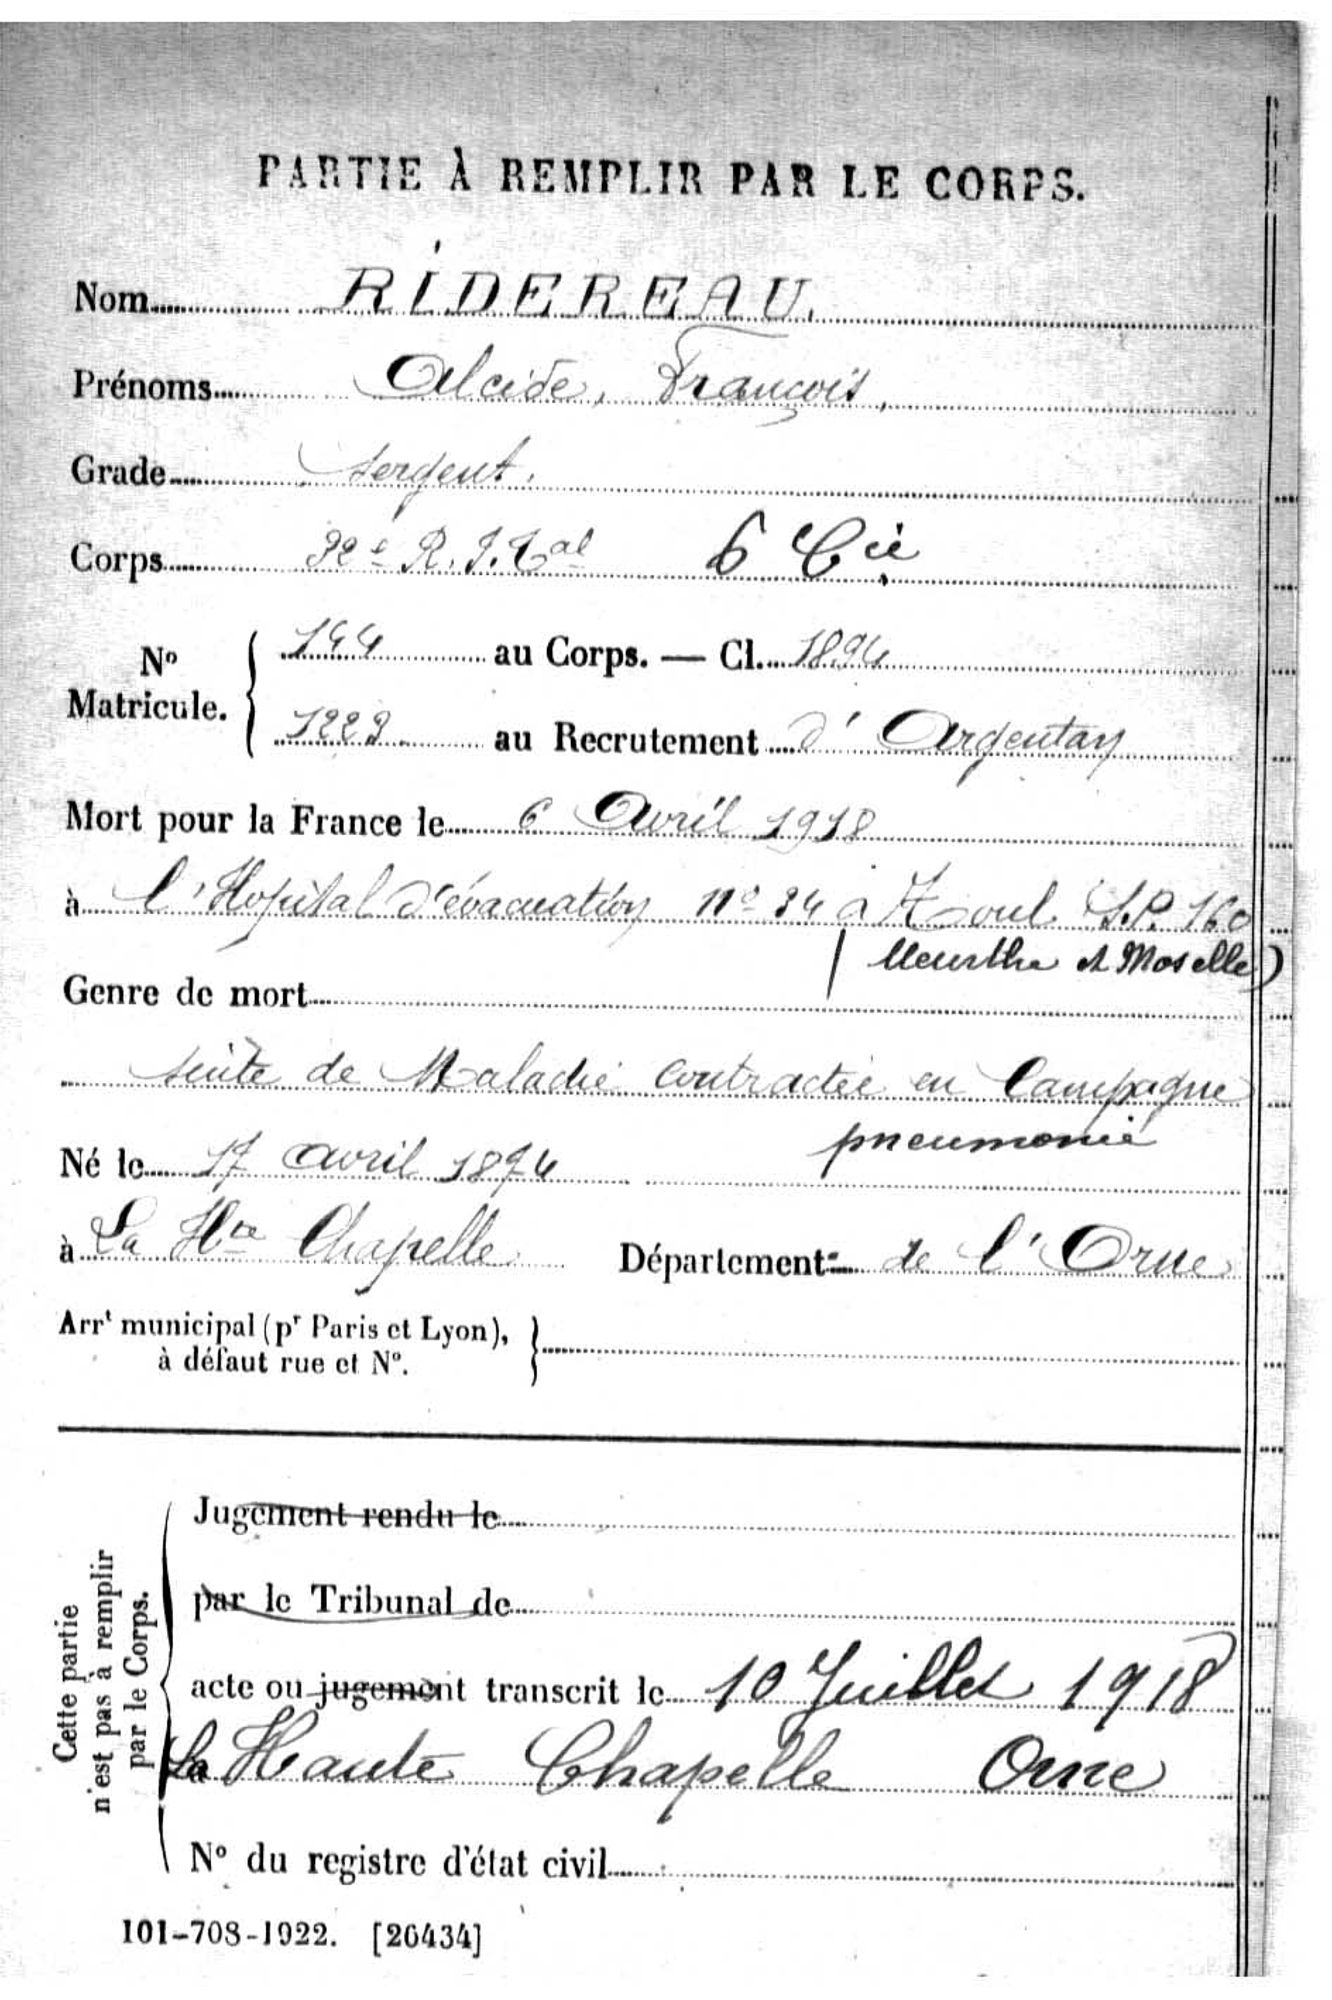 PARTIE À REMPLIR PAR LE CORPS.
Nom RIDEREAU.
Prénoms Alcide, François,
Grade Sergent.
Corps 32e R. I. Tal 6 Cie
No Matricule. 144 au Corps. — Cl. 1894
1223 au Recrutement d'Argentan
Mort pour la France le 6 Avril 1918
à l'Hopital d'évacuation no 34 à Toul S.P. 160
(Meurthe et Moselle)
Genre de mort
suite de Maladie contractée en Campagne
pneumonie
Né le 17 avril 1874
à La Hte Chapelle Département de l'Orne
Arrt municipal (pr Paris et Lyon),
à défaut rue et No.
Cette partie
n'est pas à remplir
par le Corps.
Jugement rendu le
par le Tribunal de
acte ou jugement transcrit le 10 Juillet 1918
La Haute Chapelle Orne
No du registre d'état civil
101-708-1922. [26434]